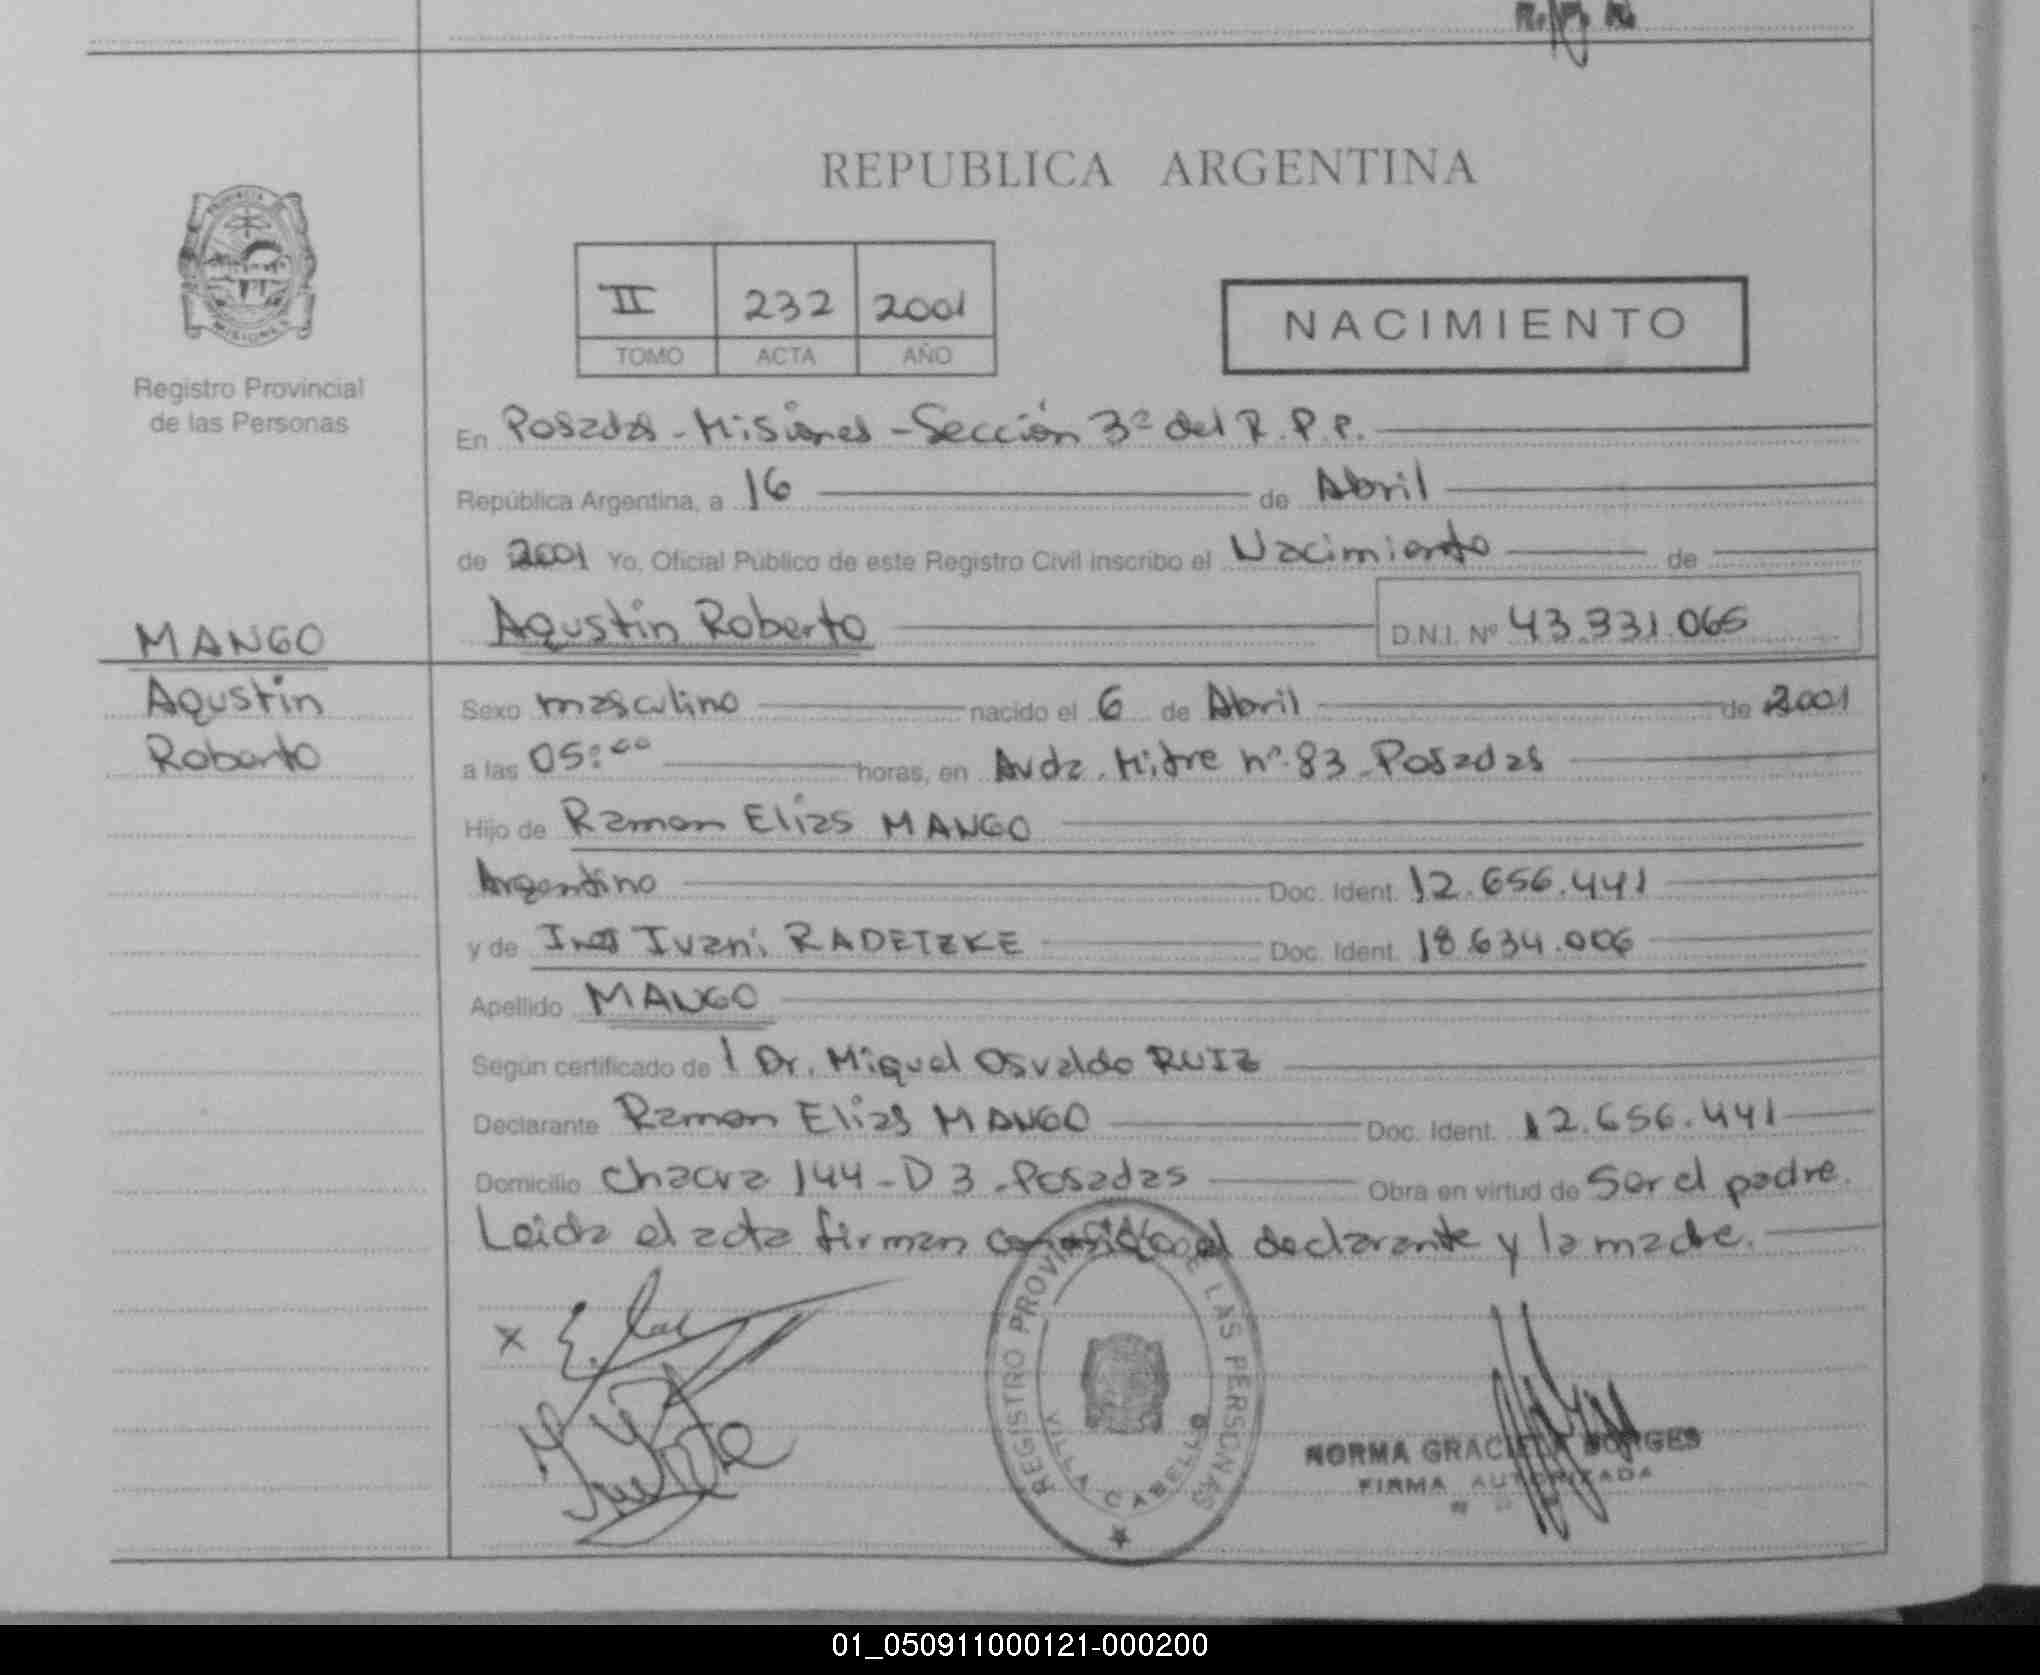 REPUBLICA ARGENTINA
PROVINCIA
MISIONES
Registro Provincial
de las Personas
II 232 2001
TOMO ACTA AÑO
NACIMIENTO
En Posadas - Misiones - Sección 3ª del R.P.P.
República Argentina, a 16 de Abril
de 2001 Yo, Oficial Público de este Registro Civil inscribo el Nacimiento de
MANGO
Agustin Roberto D.N.I. Nº 43.331.065
Agustin
Roberto
Sexo masculino nacido el 6 de Abril de 2001
a las 05:00 horas, en Avda. Mitre nº 83 - Posadas
Hijo de Ramon Elias MANGO
Argentino Doc. Ident. 12.656.441
y de Ines Ivani RADETZKE Doc. Ident. 18.634.006
Apellido MANGO
Según certificado de l Dr. Miguel Osvaldo RUIZ
Declarante Ramon Elias MANGO Doc. Ident. 12.656.441
Domicilio Chacra 144 - D 3 - Posadas Obra en virtud de Ser el padre.
Leida el acta firman conmigo el declarante y la madre.
REGISTRO PROVINCIAL DE LAS PERSONAS
VILLA CABELLO
NORMA GRACIELA BORGES
FIRMA AUTORIZADA
01_050911000121-000200